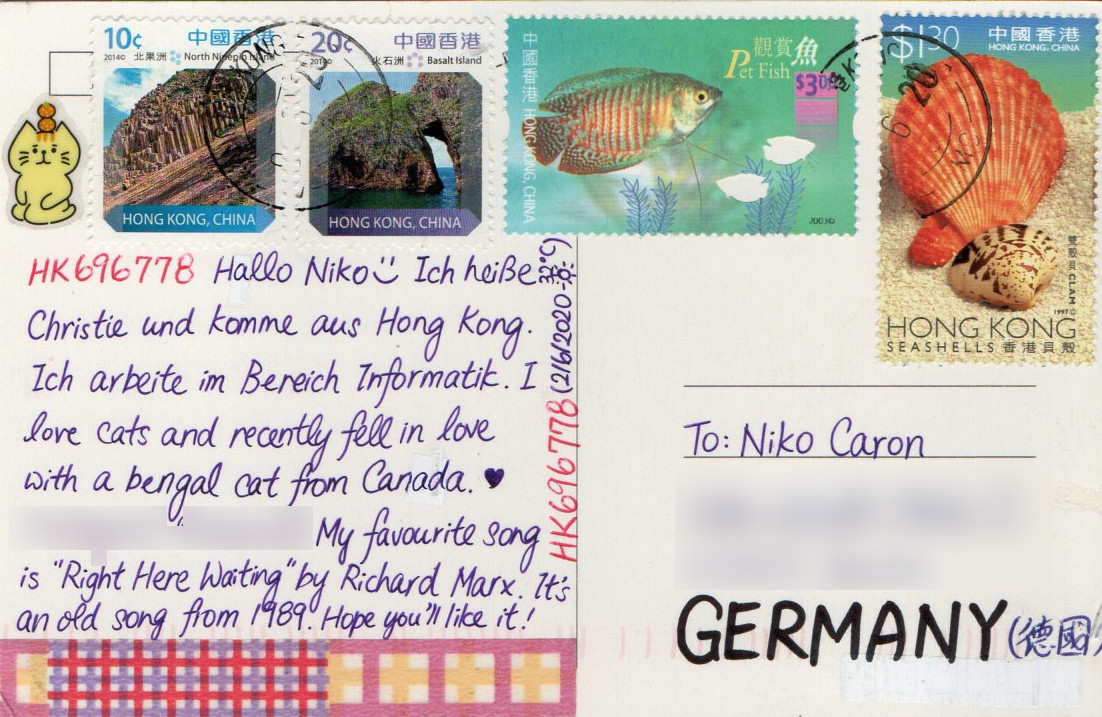 10¢ 中國香港
2014© 北果洲 North Ninepin Island
HONG KONG, CHINA
20¢ 中國香港
2014© 火石洲 Basalt Island
HONG KONG, CHINA
中國香港 HONG KONG, CHINA
觀賞魚
Pet Fish
2003©
$1.30 中國香港
HONG KONG, CHINA
雙殼貝 CLAM
1997©
HONG KONG
SEASHELLS 香港貝殼
HK696778 Hallo Niko Ich heiße
Christie und komme aus Hong Kong.
Ich arbeite im Bereich Informatik. I
love cats and recently fell in love
with a bengal cat from Canada. ♥
My favourite song
is "Right Here Waiting" by Richard Marx. It's
an old song from 1989. Hope you'll like it!
HK696778 (2/6/2020 32°C)
To: Niko Caron
GERMANY (德國)